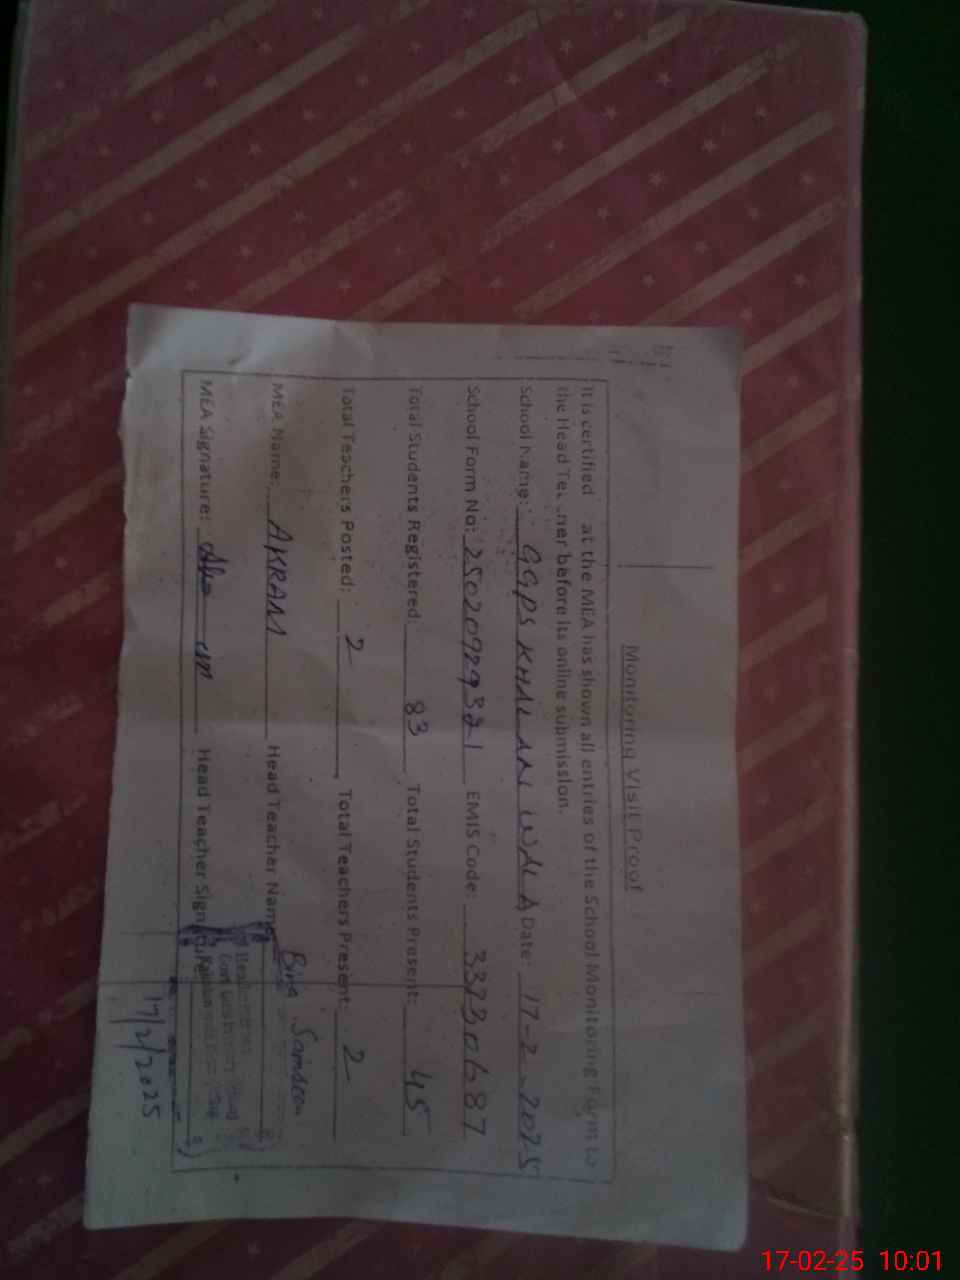 Monitoring Visit Proof
It is certified at the MEA has shown all entries of the School Monitoring Form to
the Head Te ner before its online submission.
School Name: GGPS KHALANI WALA Date: 17-2-2025
School Form No: 25020929321 EMIS Code: 33730687
Total Students Registered: 83 Total Students Present: 45
Total Teachers Posted: 2 Total Teachers Present: 2
MEA Name: AKRAM Head Teacher Name
MEA Signature: Head Teacher Signature:
17/2/2025
17-02-25 10:01